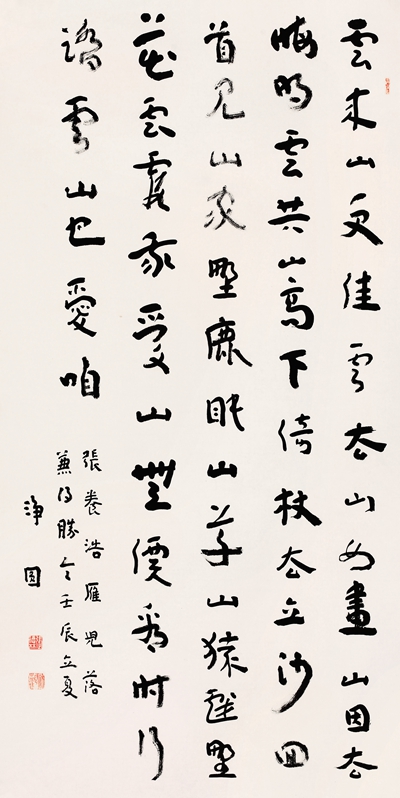 雲来山更佳雲去山如畫山因去
晦明雲共山高下倚杖去立沙回
首見山家野鹿眠山草山猿戲野
花雲霞我愛山無價看時行
踏雲山也愛咱
張養浩雁兒落
兼得勝令壬辰立夏
淨圓